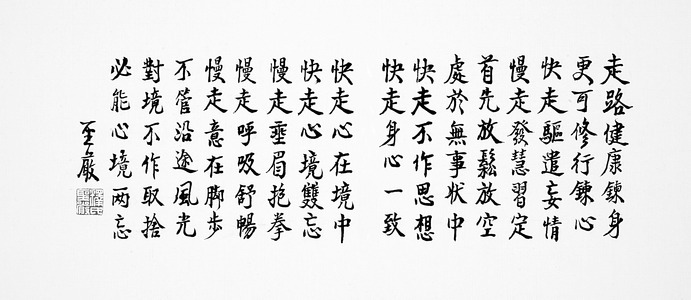 走路健康鍊身
更可修行鍊心
快走驅遣妄情
慢走發慧習定
首先放鬆放空
處於無事狀中
快走不作思想
快走身心一致
快走心在境中
快走心境雙忘
慢走垂眉抱拳
慢走呼吸舒暢
慢走意在脚步
不管沿途風光
對境不作取捨
必能心境两忘
聖嚴